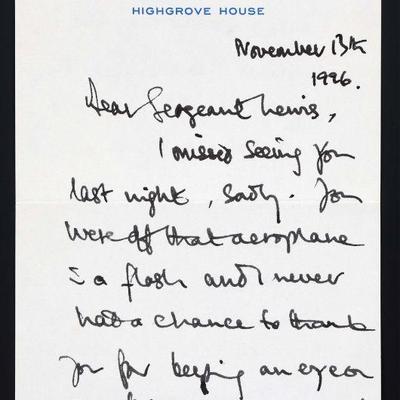 HIGHGROVE HOUSE
November 13th
1996.
Dear Sergeant Lewis,
I missed seeing you
last night, sadly. You
were off that aeroplane
in a flash and I never
had a chance to thank
you for keeping an eye on